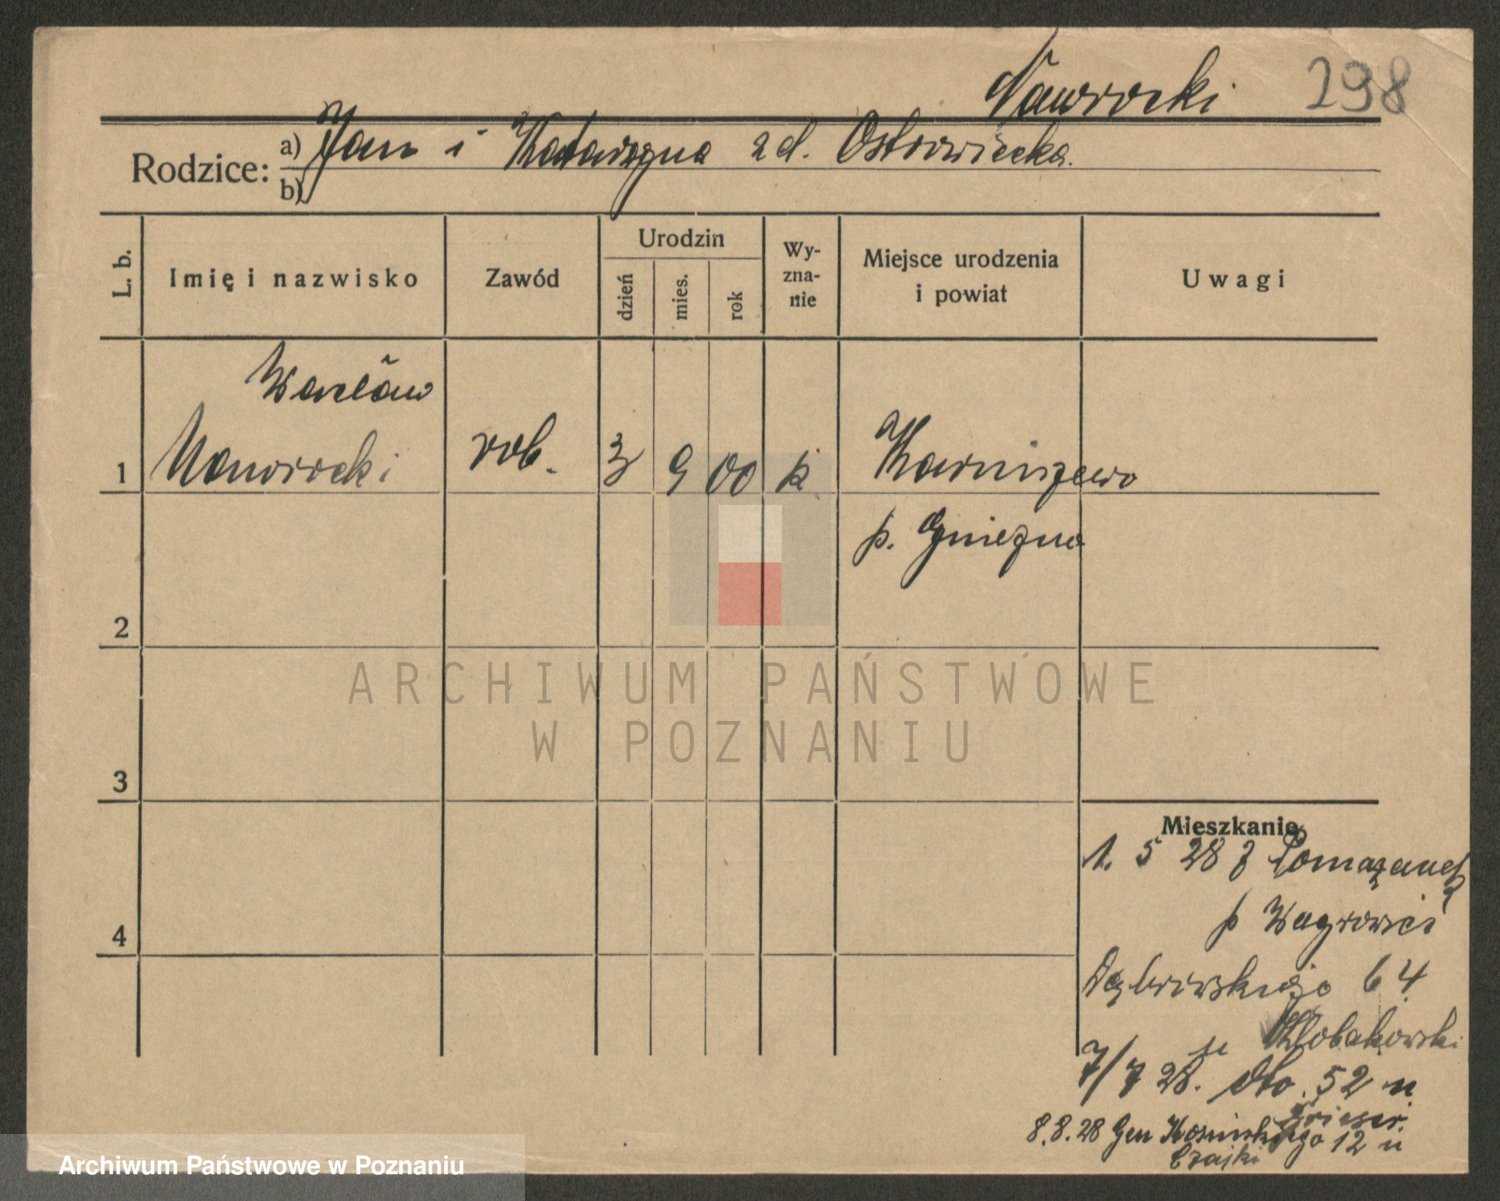 Nawrocki 298
Rodzice: a) Jan i Katarzyna zd. Ostrowiecka.
b)
L. b. Imię i nazwisko Zawód Urodzin dzień mies. rok Wy-zna-nie Miejsce urodzenia i powiat Uwagi
Wacław
1 Nawrocki rob. 3 9 00 k Karniszewo
p. Gniezno
2
ARCHIWUM PAŃSTWOWE
W POZNANIU
3
Mieszkanie
1. 5 28 z
4
p Wągrowiec
Dąbrowskiego 64
7/7 28. dto. 52 u
8.8.28 Gen Kosińskiego 12 u
Czajki
Archiwum Państwowe w Poznaniu